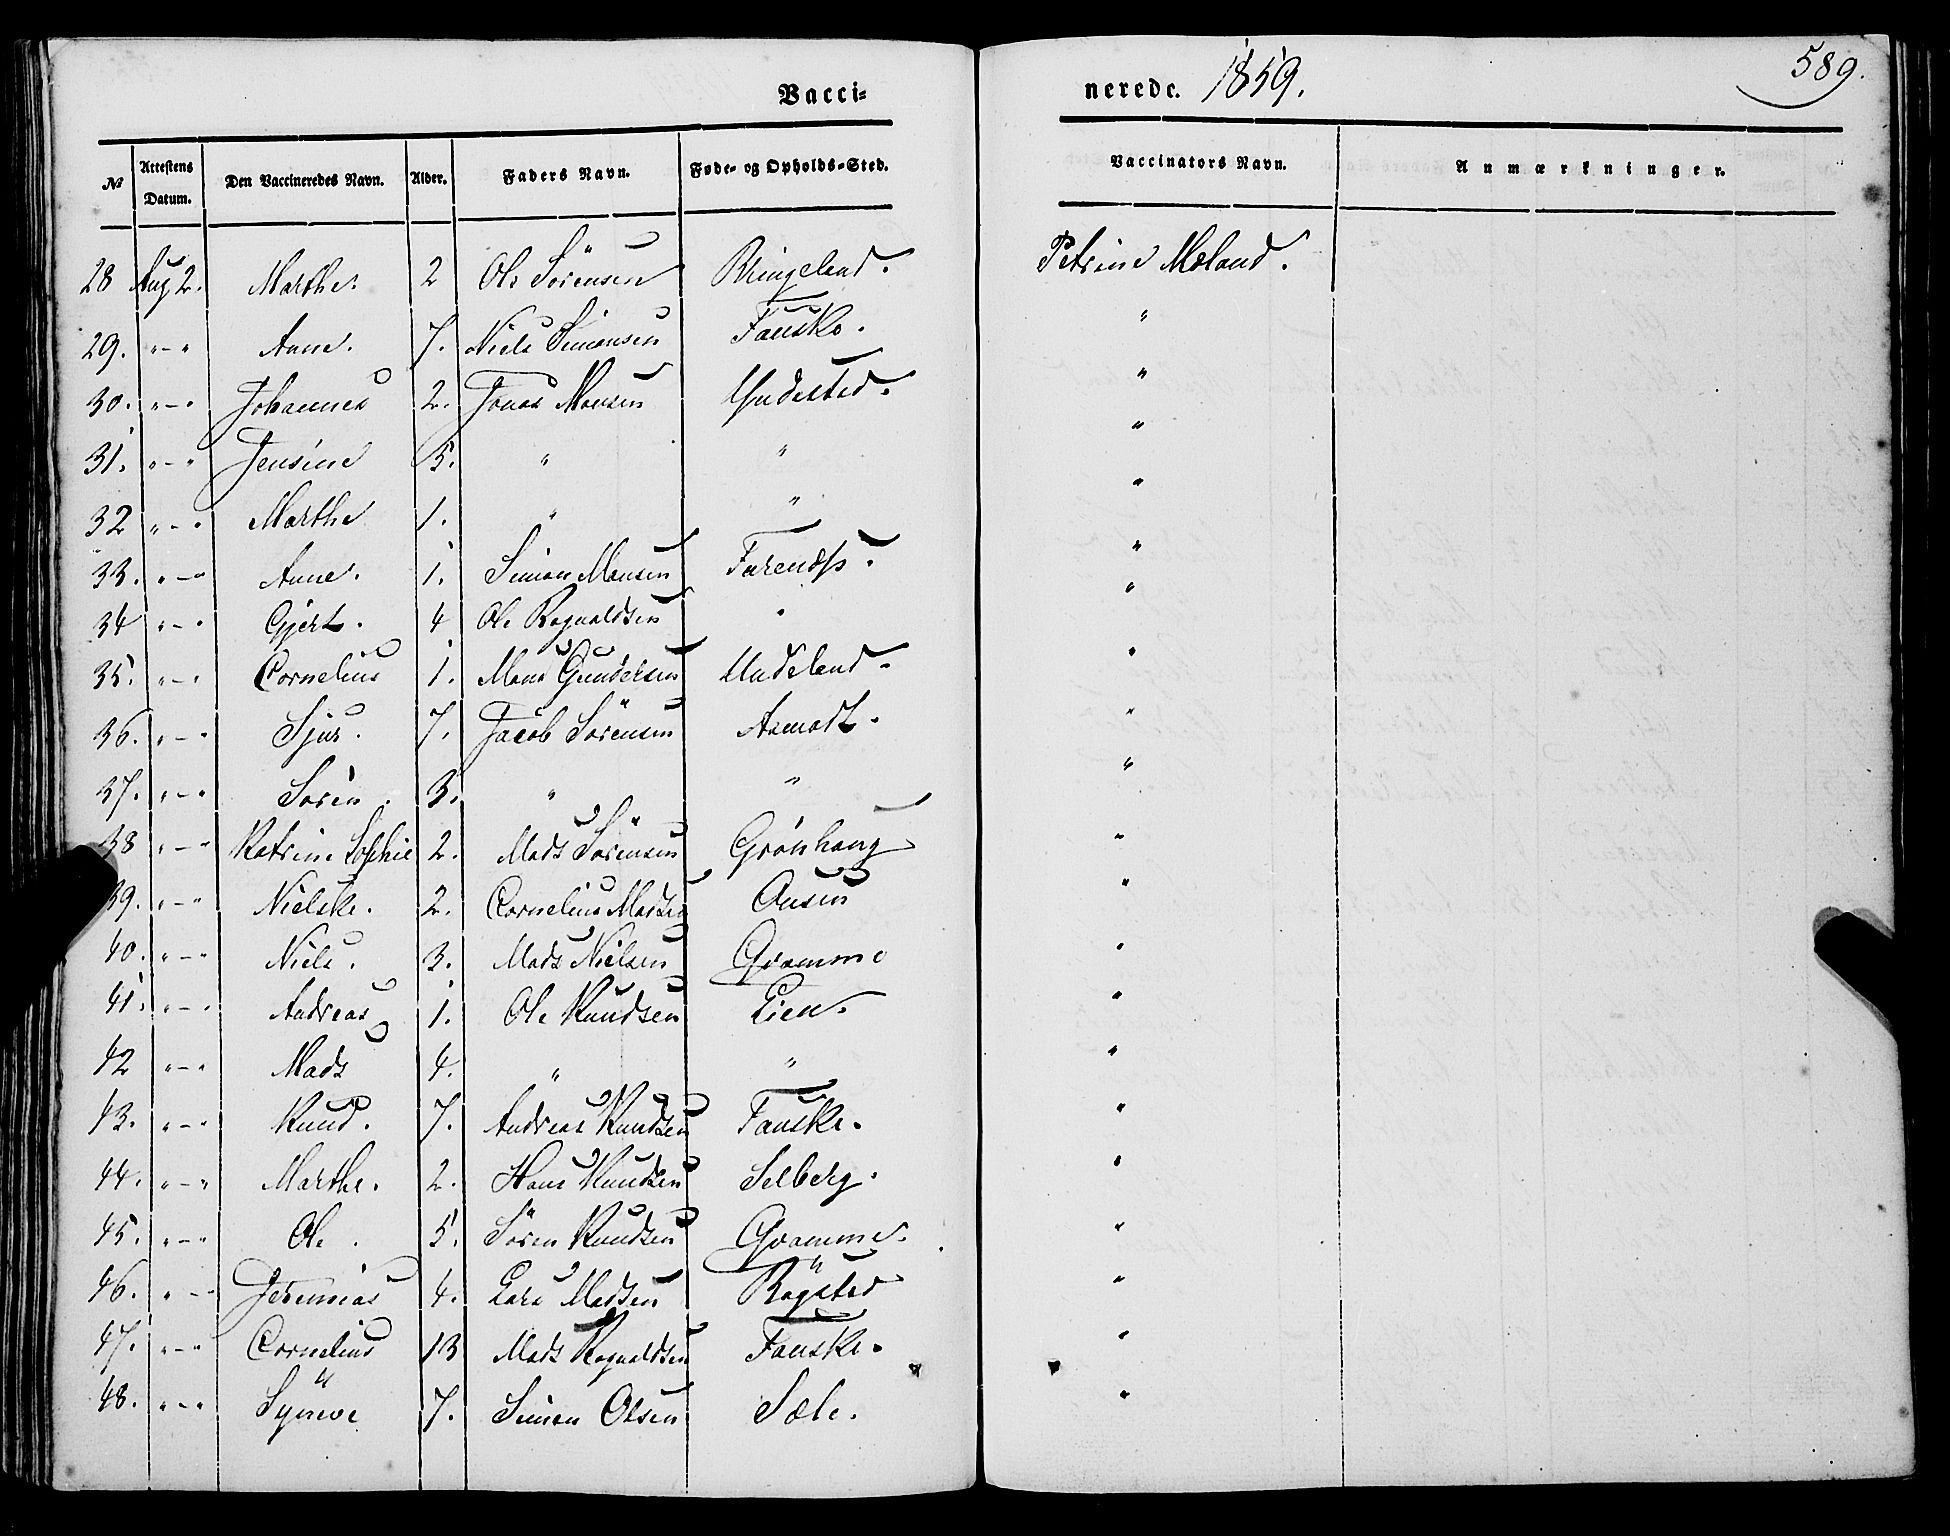 Vacci- nerede. 1859. 589.
№ Attestens Datum. Den Vaccineredes Navn. Alder. Faders Navn. Føde- og Opholds-Sted. Vaccinators Navn. Anmærkninger.
28 Aug 2. Marthe. 2 Ole Sörensen Bringeland. Petrine Moland.
29. " - " Anne. 7. Niels Simonsen Fauske. "
30. " - " Johannes 2. Jonas Monsen Yndested. "
31. " - " Jensine 5. " " "
32 " - " Marthe 1. " " "
33. " - " Anne. 1. Simon Monsen "
34 " - " Gjert. 4 Ole Ragnaldsen " "
35. " - " Cornelius 1. Mons Gundersen Undeland. "
36. " - " Sjur. 7. Jacob Sörensen "
37. " - " Sören. 3. " " "
38 " - " Katrine Sophie 2. Mads Sörensen Grönhaug "
39. " - " Nielske. 2. Cornelius Madsen "
40. " - " Niels. 3. Mads Nielsen Qvamme "
41. " - " Andreas 1. Ole Knudsen Eien. "
42 " - " Mads 4. " " "
43. " - " Knud. 7. Andreas Knudsen Fauske. "
44. " - " Marthe. 2. Hans Knudsen Selberg. "
45. " - " Ole. 5. Sören Knudsen Qvamme. "
46. " - " Jeremias 4. Lars Madsen "
47. " - " Cornelius 13 Mads Ragnaldsen Fauske. "
48. " - " Synneve 7. Simon Olsen Sæle. "